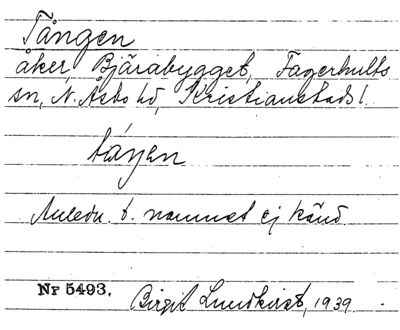 Tången
åker, Bjärabygget, Fagerhults
sn, N. Åsbo hd, Kristianstads l.
táŋen
Anledn. t. namnet ej känd.
Nr 5493. Birgit Lundkvist, 1939.